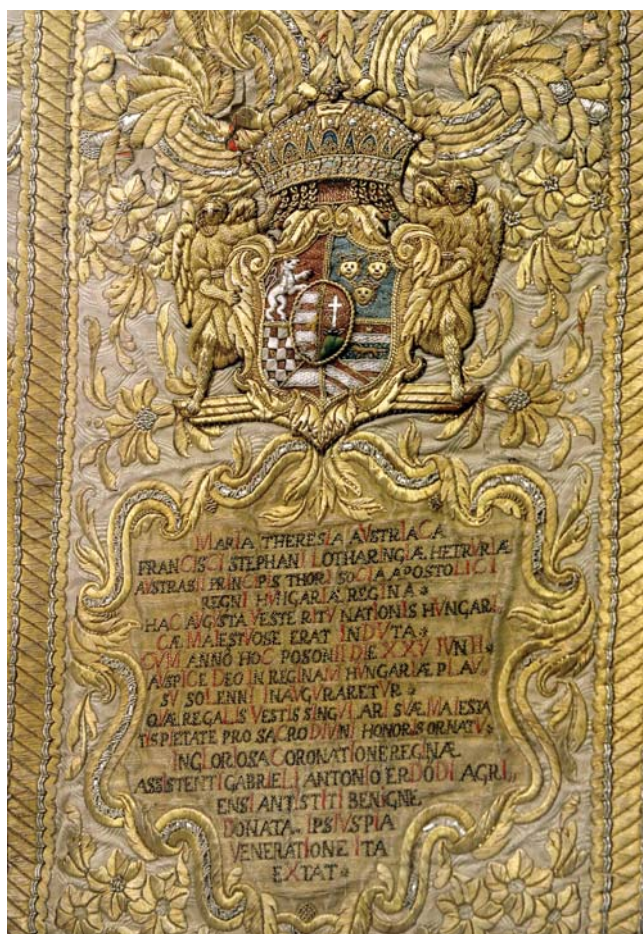 MARIA THERESIA AVSTRIACA
FRANCISCI STEPHANI LOTHARINGIÆ HETRVRIÆ
AVSTRASII PRINCIPIS THORI SOCIA APOSTOLICI
REGNI HVNGARIÆ REGINA
HAC AVGVSTA VESTE RITV NATIONIS HVNGARI,
CÆ MAIESTVOSE ERAT INDVTA
CVM ANNO HOC POSONII DIE XXV IVNII
AVSPICE DEO IN REGINAM HVNGARIÆ PLAV,
SV SOLENNI INAVGVRARETVR
QVÆ REGALIS VESTIS SINGVLARI SVÆ MAIESTA
TIS PIETATE PRO SACRO DIVINI HONORIS ORNATV
IN GLORIOSA CORONATIONE REGINÆ
ASSISTENTI GABRIELI ANTONIO ERDÖDI AGRI,
ENSI ANTISTITI BENIGNE
DONATA IPSIVS PIA
VENERATIONE ITA
EXTAT